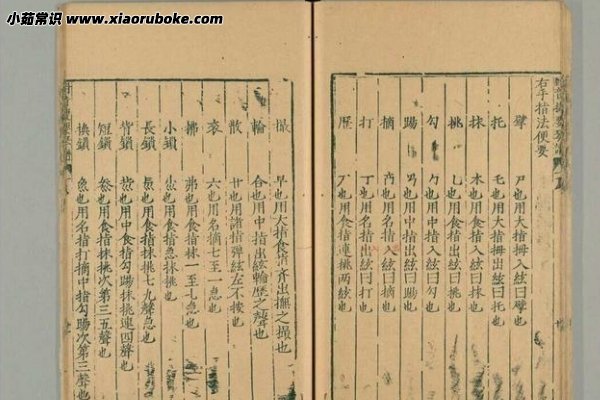 小茹常识 www.xiaoruboke.com
右手指法便要
擘 尸也用大指擘入絃曰擘也
托 乇也用大指擘出絃曰托也
抹 木也用食指入絃曰抹也
挑 乚也用食指出絃曰挑也
勾 勹也用中指入絃曰勾也
踢 易也用中指出絃曰踢也
摘 用名指入絃曰摘也
打 丁也用名指出絃曰打也
歷 也用食指連挑兩絃也
撮 早也用大指食指齊出撫之撮也
輪 合也用中指出絃輪歷之聲也
散 廿也用諸指彈絃左不按也
衮 六也用名摘七至一急也
拂 弗也用食指抹一至七急也
小鎖 也用食指急抹挑也
長鎖 也用食指抹挑七九聲急也
背鎖 也用中食指勾踢抹挑連四聲也
短鎖 也用食指抹挑次第三五聲也
換鎖 也用名指打摘中指勾踢次第三聲也